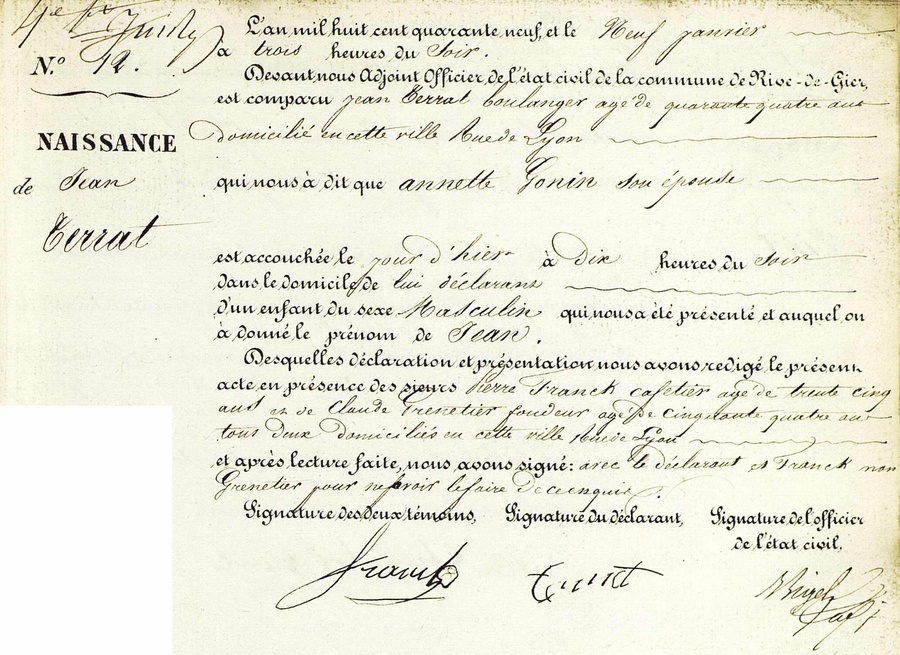 L'an mil huit cent quarante neuf, et le Neuf janvier
a trois heures du Soir.
N.o 12.
Devant nous Adjoint Officier de l'état civil de la commune de Rive-de-Gier,
est comparu jean Terrat boulanger agé de quarante quatre ans
NAISSANCE
domicilié en cette ville Rue de Lyon
de Jean
qui nous à dit que annette Gonin son épouse
Terrat
est accouchée le jour d'hier à Dix heures du Soir
dans le domicile de lui déclarant
d'un enfant du sexe Masculin qui nous a été présenté et auquel on
à donné le prénom de Jean.
Desquelles déclaration et présentation nous avons redigé le présent
acte en présence des sieurs pierre Franck cafetier agé de trente cinq
ans et de Claude Grenetier fondeur agé de cinquante quatre ans
tous deux domiciliés en cette ville Rue de Lyon
et après lecture faite, nous avons signé: avec le déclarant et Franck non
Grenetier pour ne savoir le faire de ce enquis.
Signature des deux témoins, Signature du déclarant, Signature de l'officier
de l'état civil,
Franck Terrat